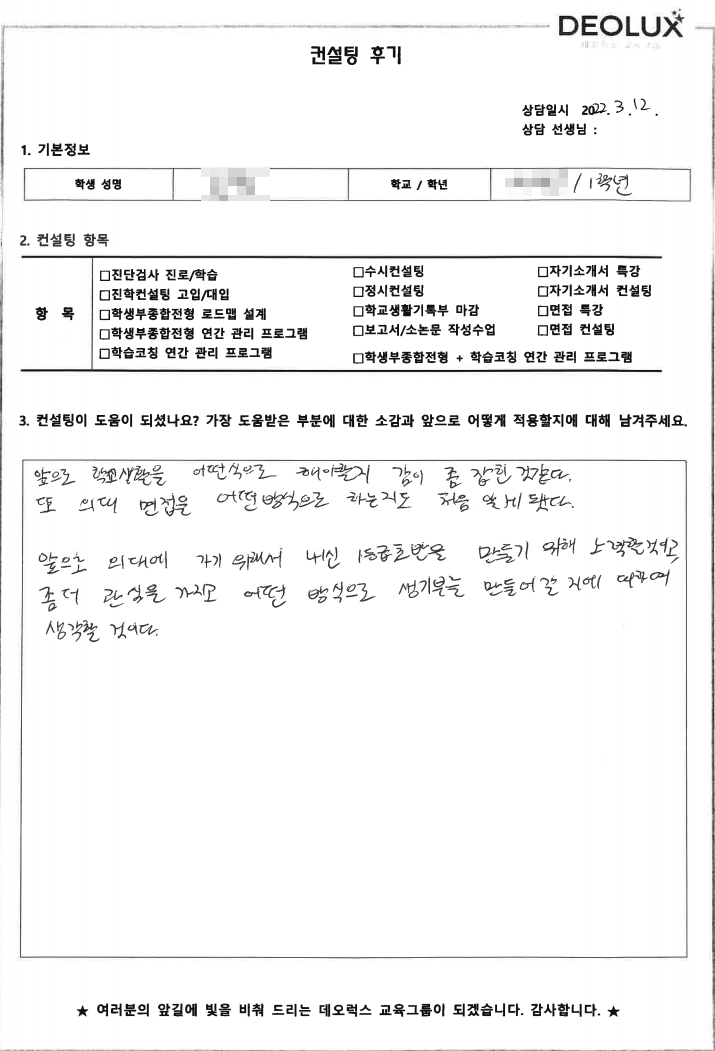 DEOLUX
데오럭스 교육그룹
컨설팅 후기
상담일시 2022. 3. 12.
상담 선생님 :
1. 기본정보
학생 성명
학교 / 학년
/ 1학년
2. 컨설팅 항목
항 목
□진단검사 진로/학습 □수시컨설팅 □자기소개서 특강
□진학컨설팅 고입/대입 □정시컨설팅 □자기소개서 컨설팅
□학생부종합전형 로드맵 설계 □학교생활기톡부 마감 □면접 특강
□학생부종합전형 연간 관리 프로그램 □보고서/소논문 작성수업 □면접 컨설팅
□학습코칭 연간 관리 프로그램 □학생부종합전형 + 학습코칭 연간 관리 프로그램
3. 컨설팅이 도움이 되셨나요? 가장 도움받은 부분에 대한 소감과 앞으로 어떻게 적용할지에 대해 남겨주세요.
앞으로 학교생활을 어떤식으로 해야할지 감이 좀 잡힌 것같다.
또 의대 면접을 어떤방식으로 하는지도 처음 알게 됐다.
앞으로 의대에 가기 위해서 내신 1등급초반을 만들기 위해 노력할것이고,
좀더 관심을 가지고 어떤 방식으로 생기부를 만들어갈 지에 대하여
생각할 것이다.
★ 여러분의 앞길에 빛을 비춰 드리는 데오럭스 교육그룹이 되겠습니다. 감사합니다. ★